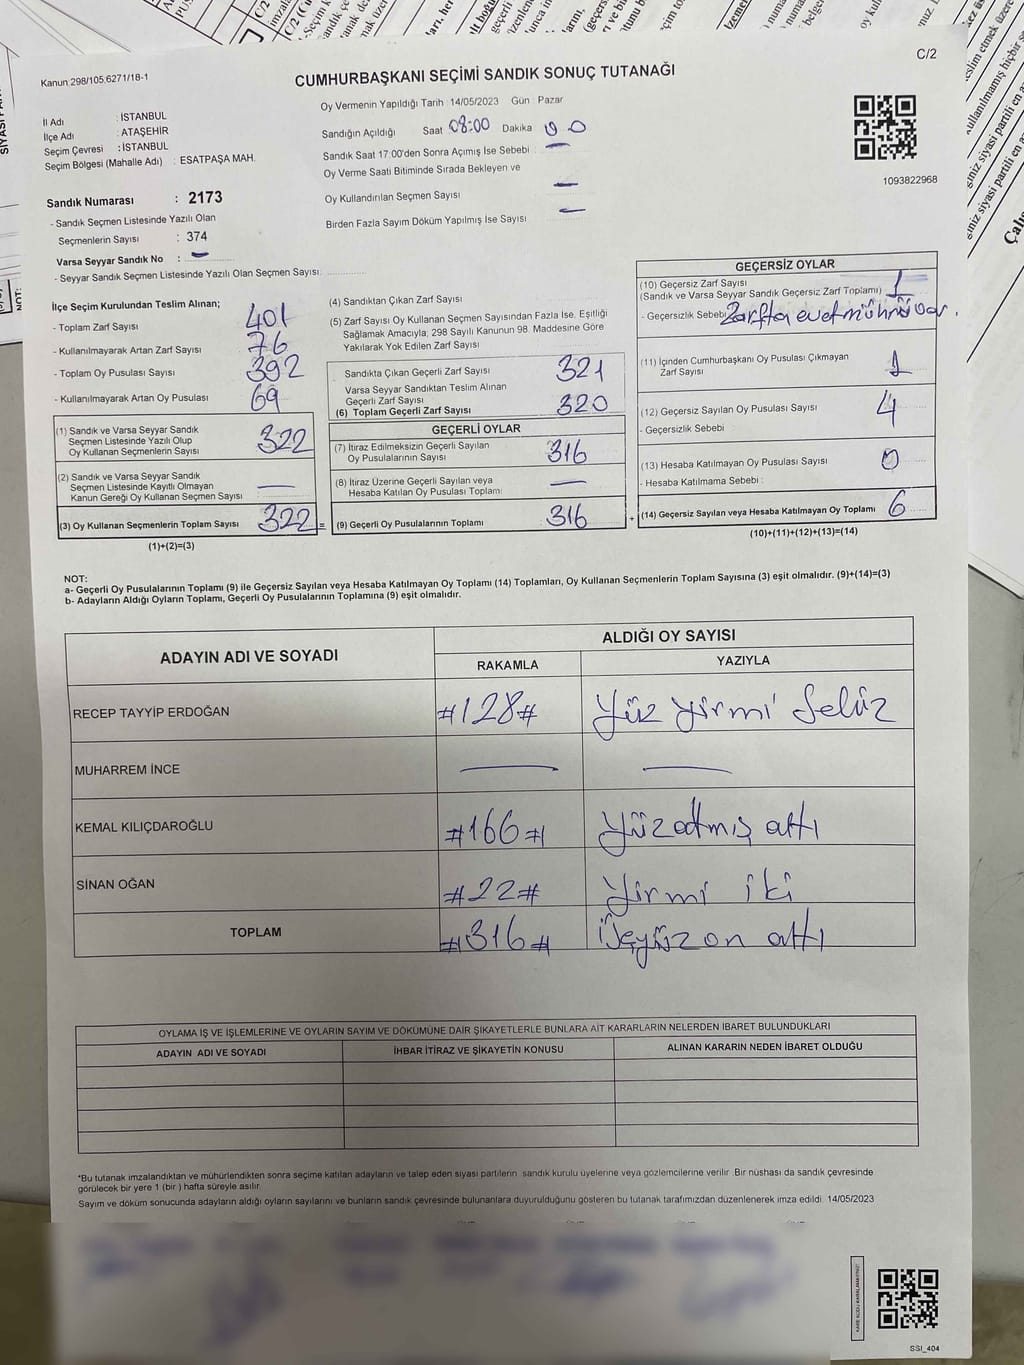 C/2
Kanun 298/105,6271/18-1
CUMHURBAŞKANI SEÇİMİ SANDIK SONUÇ TUTANAĞI
İl Adı : İSTANBUL
İlçe Adı : ATAŞEHİR
Seçim Çevresi : İSTANBUL
Seçim Bölgesi (Mahalle Adı) : ESATPAŞA MAH.
Oy Vermenin Yapıldığı Tarih : 14/05/2023 Gün : Pazar
Sandığın Açıldığı Saat 08:00 Dakika 00
Sandık Saat 17:00'den Sonra Açımış İse Sebebi : —
Oy Verme Saati Bitiminde Sırada Bekleyen ve
Oy Kullandırılan Seçmen Sayısı —
Birden Fazla Sayım Döküm Yapılmış İse Sayısı —
1093822968
Sandık Numarası : 2173
- Sandık Seçmen Listesinde Yazılı Olan
Seçmenlerin Sayısı : 374
Varsa Seyyar Sandık No : —
- Seyyar Sandık Seçmen Listesinde Yazılı Olan Seçmen Sayısı
İlçe Seçim Kurulundan Teslim Alınan;
- Toplam Zarf Sayısı 401
- Kullanılmayarak Artan Zarf Sayısı 76
- Toplam Oy Pusulası Sayısı 392
- Kullanılmayarak Artan Oy Pusulası 69
(1) Sandık ve Varsa Seyyar Sandık
Seçmen Listesinde Yazılı Olup
Oy Kullanan Seçmenlerin Sayısı 322
(2) Sandık ve Varsa Seyyar Sandık
Seçmen Listesinde Kayıtlı Olmayan
Kanun Gereği Oy Kullanan Seçmen Sayısı —
(3) Oy Kullanan Seçmenlerin Toplam Sayısı 322 =
(1)+(2)=(3)
(4) Sandıktan Çıkan Zarf Sayısı
(5) Zarf Sayısı Oy Kullanan Seçmen Sayısından Fazla İse, Eşitliği
Sağlamak Amacıyla; 298 Sayılı Kanunun 98. Maddesine Göre
Yakılarak Yok Edilen Zarf Sayısı
Sandıkta Çıkan Geçerli Zarf Sayısı 321
Varsa Seyyar Sandıktan Teslim Alınan
Geçerli Zarf Sayısı
(6) Toplam Geçerli Zarf Sayısı 320
GEÇERLİ OYLAR
(7) İtiraz Edilmeksizin Geçerli Sayılan
Oy Pusulalarının Sayısı 316
(8) İtiraz Üzerine Geçerli Sayılan veya
Hesaba Katılan Oy Pusulası Toplamı —
(9) Geçerli Oy Pusulalarının Toplamı 316 +
GEÇERSİZ OYLAR
(10) Geçersiz Zarf Sayısı
(Sandık ve Varsa Seyyar Sandık Geçersiz Zarf Toplamı) 1
- Geçersizlik Sebebi Zarfta evet mührü var.
(11) İçinden Cumhurbaşkanı Oy Pusulası Çıkmayan
Zarf Sayısı 1
(12) Geçersiz Sayılan Oy Pusulası Sayısı 4
- Geçersizlik Sebebi
(13) Hesaba Katılmayan Oy Pusulası Sayısı 0
- Hesaba Katılmama Sebebi :
(14) Geçersiz Sayılan veya Hesaba Katılmayan Oy Toplamı 6
(10)+(11)+(12)+(13)=(14)
NOT:
a- Geçerli Oy Pusulalarının Toplamı (9) ile Geçersiz Sayılan veya Hesaba Katılmayan Oy Toplamı (14) Toplamları, Oy Kullanan Seçmenlerin Toplam Sayısına (3) eşit olmalıdır. (9)+(14)=(3)
b- Adayların Aldığı Oyların Toplamı, Geçerli Oy Pusulalarının Toplamına (9) eşit olmalıdır.
ADAYIN ADI VE SOYADI
ALDIĞI OY SAYISI
RAKAMLA YAZIYLA
RECEP TAYYİP ERDOĞAN #128# Yüz yirmi Sekiz
MUHARREM İNCE — —
KEMAL KILIÇDAROĞLU #166# Yüzatmış altı
SİNAN OĞAN #22# Yirmi iki
TOPLAM #316# Üçyüz on altı
OYLAMA İŞ VE İŞLEMLERİNE VE OYLARIN SAYIM VE DÖKÜMÜNE DAİR ŞİKAYETLERLE BUNLARA AİT KARARLARIN NELERDEN İBARET BULUNDUKLARI
ADAYIN ADI VE SOYADI İHBAR İTİRAZ VE ŞİKAYETİN KONUSU ALINAN KARARIN NEDEN İBARET OLDUĞU
*Bu tutanak imzalandıktan ve mühürlendikten sonra seçime katılan adayların ve talep eden siyasi partilerin sandık kurulu üyelerine veya gözlemcilerine verilir. Bir nüshası da sandık çevresinde
görülecek bir yere 1 (bir ) hafta süreyle asılır.
Sayım ve döküm sonucunda adayların aldığı oyların sayılarını ve bunların sandık çevresinde bulunanlara duyurulduğunu gösteren bu tutanak tarafımızdan düzenlenerek imza edildi. 14/05/2023
SSI_404